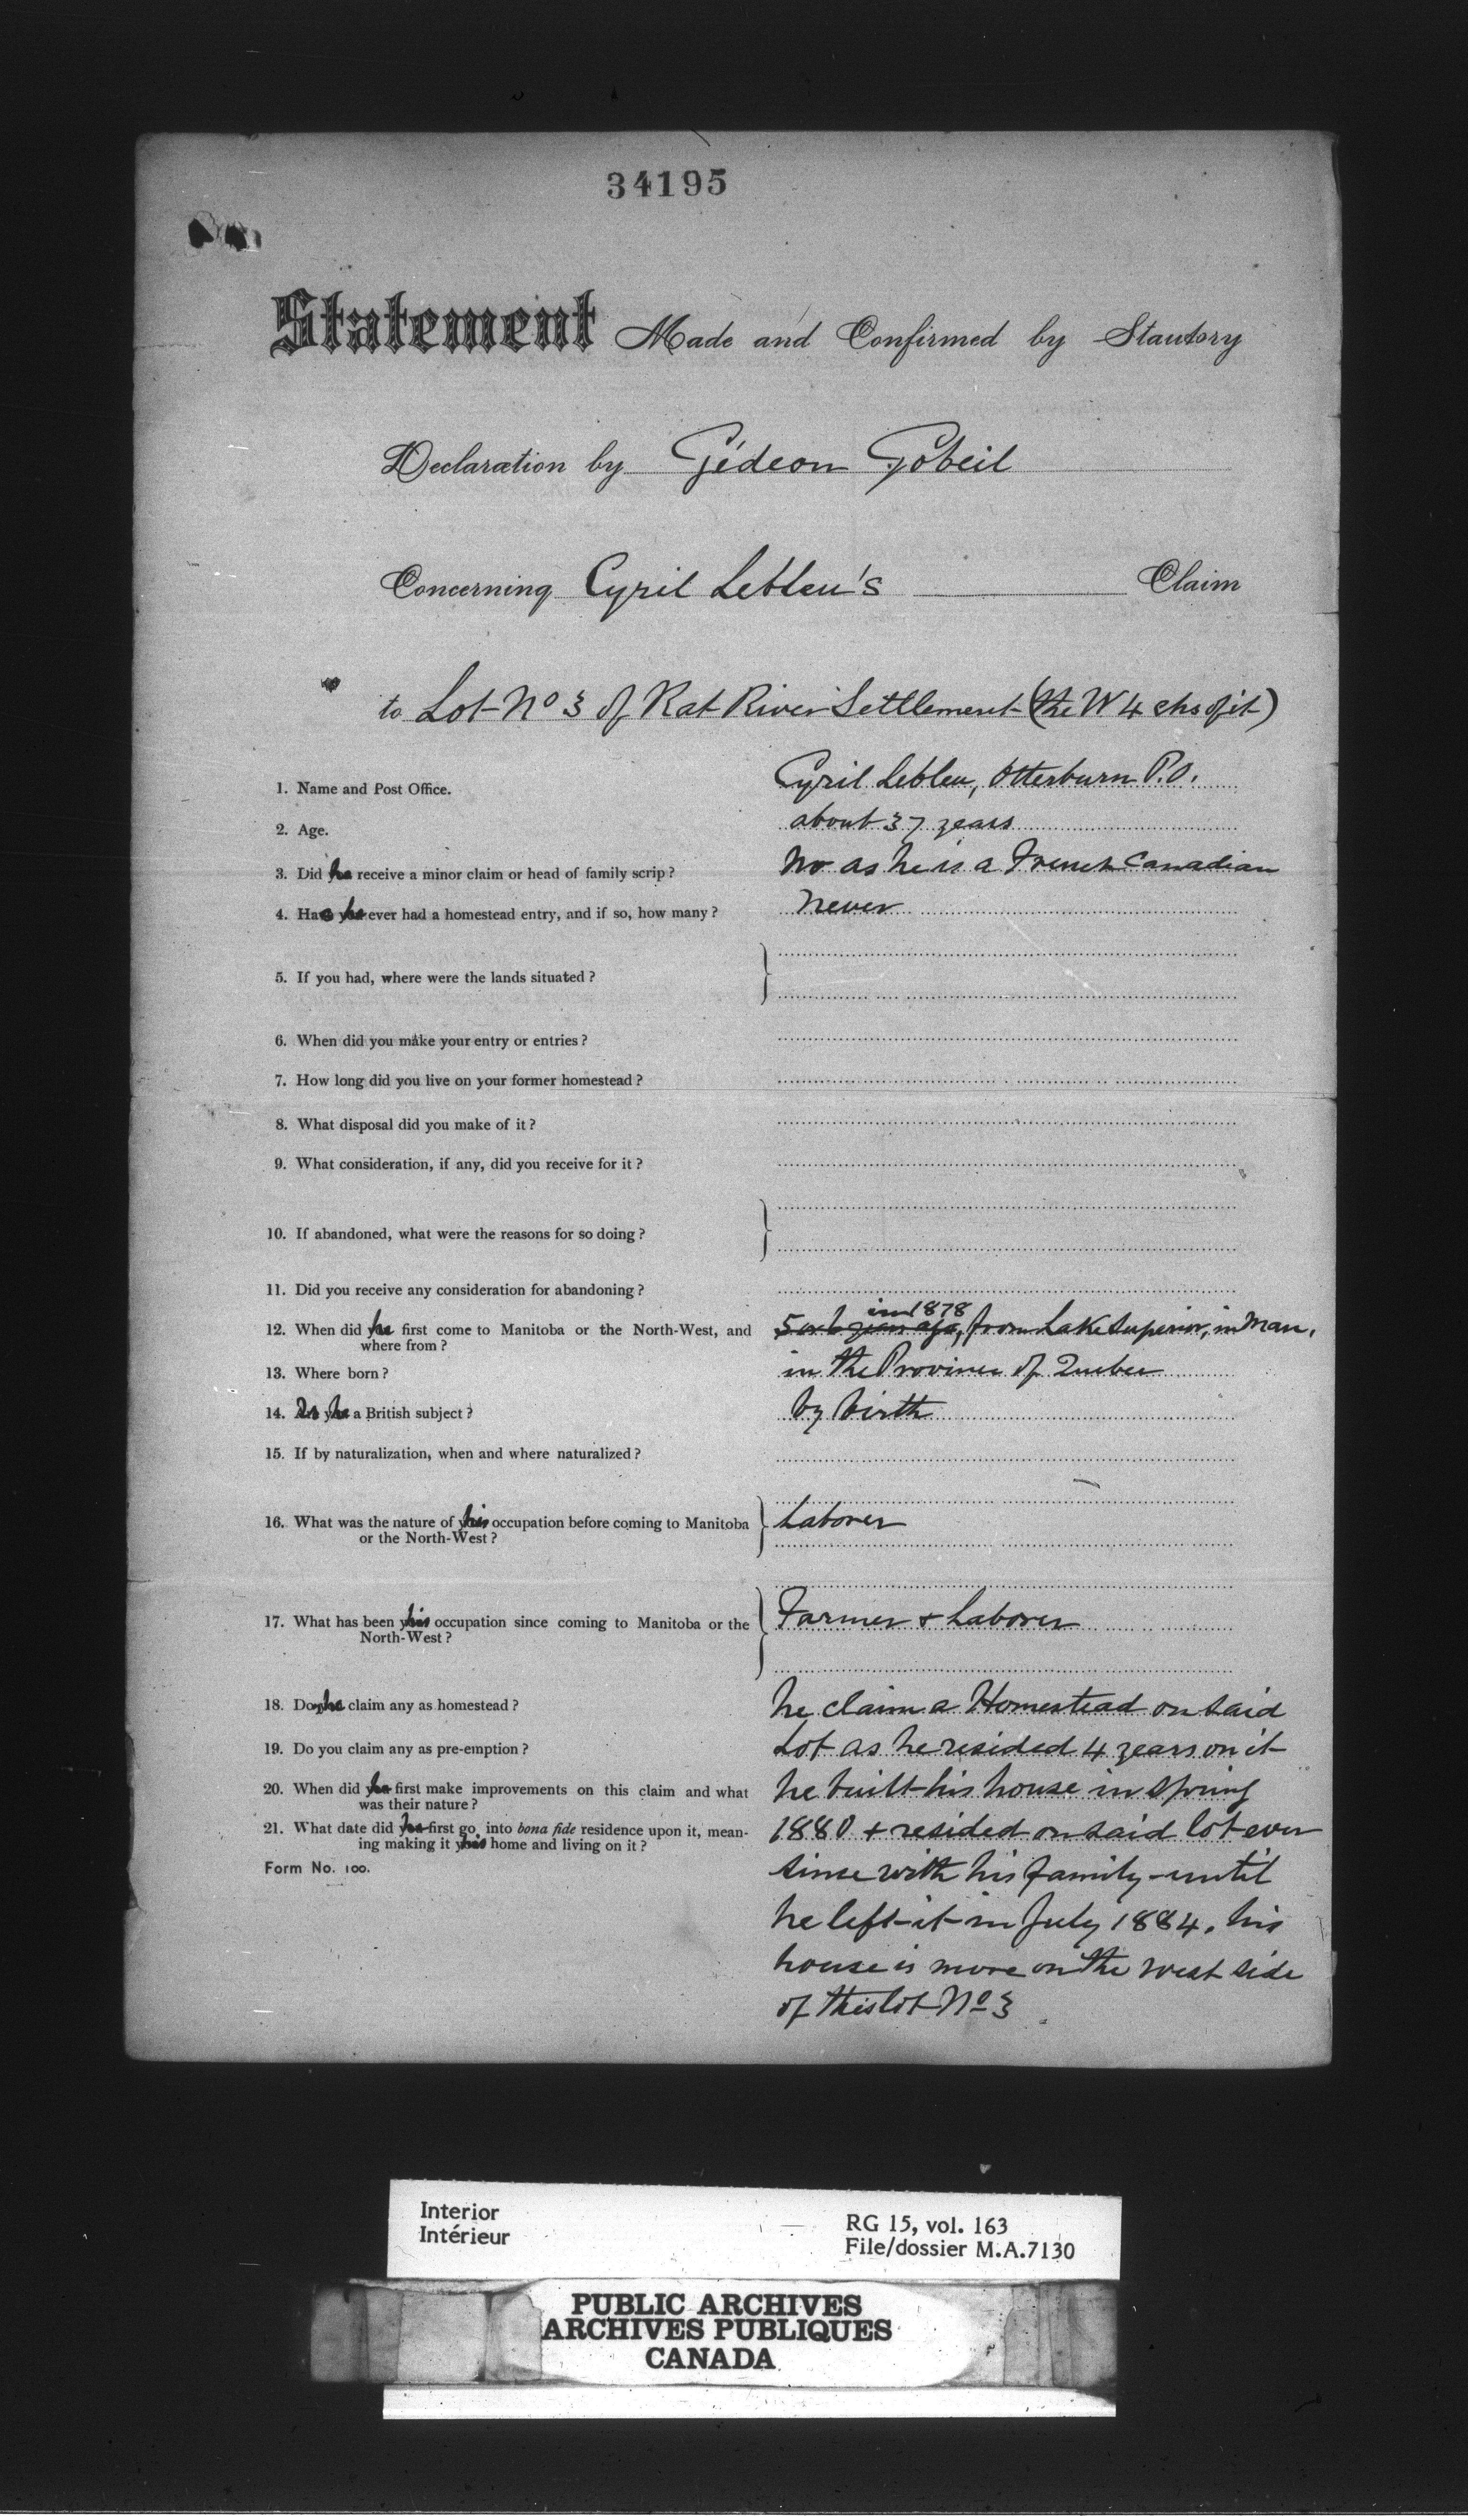 34195
Statement Made and Confirmed by Stautory
Declaration by Gédeon Gobeil
Concerning Cyril Lebleu's Claim
to Lot No 3 of Rat River Settlement (the W 4 chs of it)
1. Name and Post Office. Cyril Lebleu, Otterburn P.O.
2. Age. about 37 years
3. Did he receive a minor claim or head of family scrip? No as he is a French Canadian
4. Has he ever had a homestead entry, and if so, how many? Never
5. If you had, where were the lands situated?
6. When did you make your entry or entries?
7. How long did you live on your former homestead?
8. What disposal did you make of it?
9. What consideration, if any, did you receive for it?
10. If abandoned, what were the reasons for so doing?
11. Did you receive any consideration for abandoning?
in 1878
12. When did he first come to Manitoba or the North-West, and 5 or 6 years ago, from Lake Superior, in Man.
where from?
13. Where born? in the Province of Quebec
14. Is he a British subject? by birth
15. If by naturalization, when and where naturalized?
16. What was the nature of his occupation before coming to Manitoba Laborer
or the North-West?
17. What has been his occupation since coming to Manitoba or the Farmer & Laborer
North-West?
18. Do he claim any as homestead? he claim a Homestead on said
19. Do you claim any as pre-emption? Lot as he resided 4 years on it
20. When did he first make improvements on this claim and what he built his house in spring
was their nature?
21. What date did he first go into bona fide residence upon it, mean- 1880 & resided on said lot ever
ing making it his home and living on it?
Form No. 100. since with his family until
he left it in July 1884. his
house is more on the west side
of this lot No 3
Interior
Intérieur
RG 15, vol. 163
File/dossier M.A.7130
PUBLIC ARCHIVES
ARCHIVES PUBLIQUES
CANADA